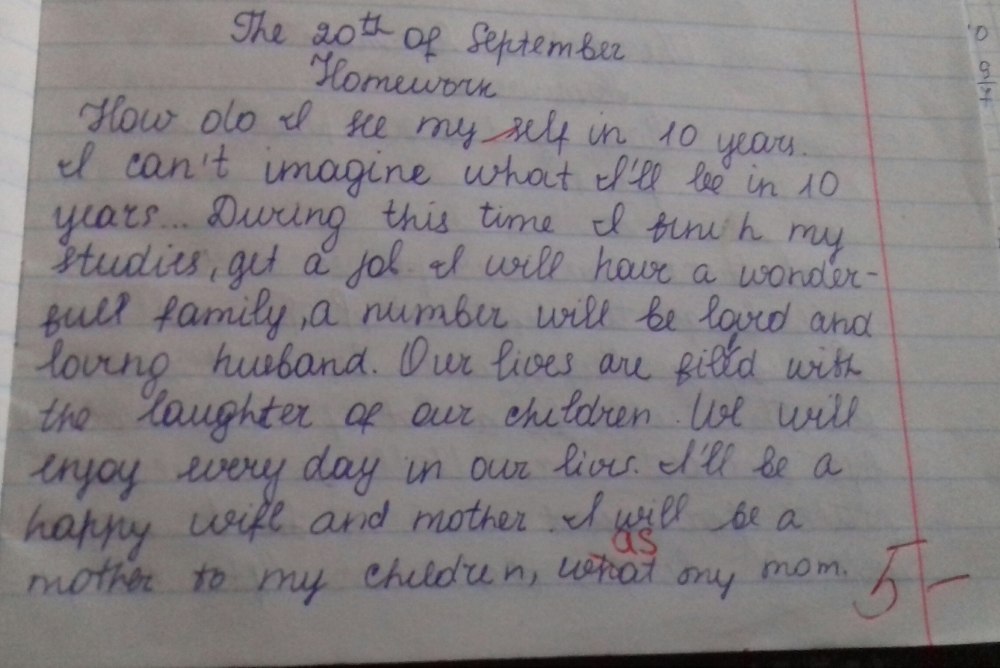 The 20th of September
Homework
How do I see my self in 10 years.
I can't imagine what I'll be in 10
years... During this time I finich my
studies, get a job. I will have a wonder-
full family, a number will be and
loving husband. Our lives are filled with
the laughter of our children. We will
enjoy every day in our lives. I'll be a
happy wife and mother. I will be a
as
mother to my children, what my mom.
5-